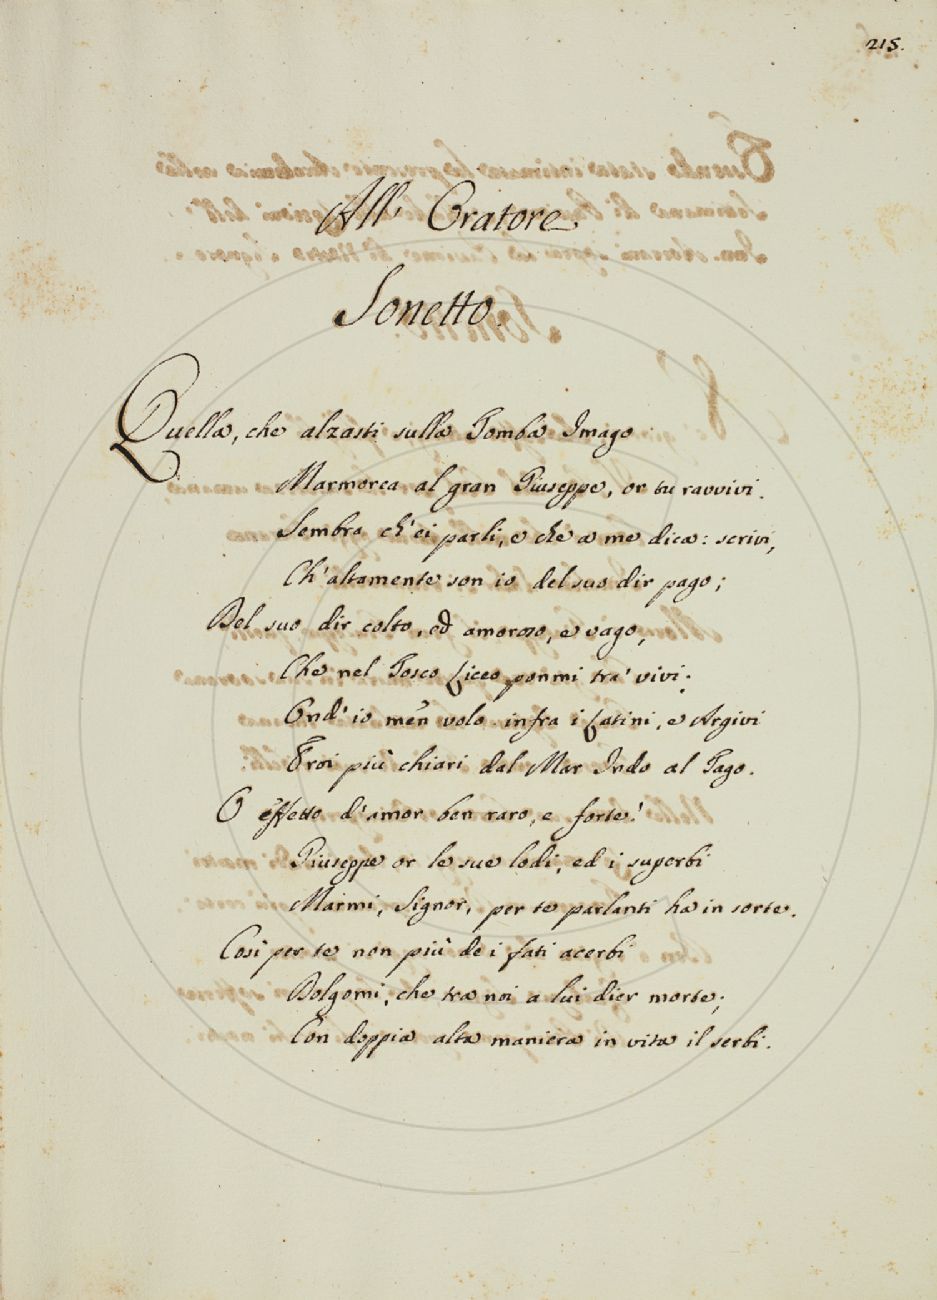 215.
All' Oratore
Sonetto.
Quella, che alzasti sulla Tomba Imago
Marmorea al gran Giuseppe, or tu ravvivi.
Sembra ch'ei parli, e che a me dica: scrivi,
Ch'altamente son io del suo dir pago;
Del suo dir colto, ed amoroso, e vago,
Che nel Tosco Liceo ponmi tra' vivi;
Ond' io men volo infra i Latini, e Argivi
Eroi più chiari dal Mar Indo al Tago.
O effetto d'amor ben raro, e forte!
Giuseppe or le sue lodi, ed i superbi
Marmi, Signor, per te parlanti ha in sorte.
Così per te non più de i fati acerbi
Dolgomi, che tra noi a lui dier morte;
Con doppia alta maniera in vita il serbi.